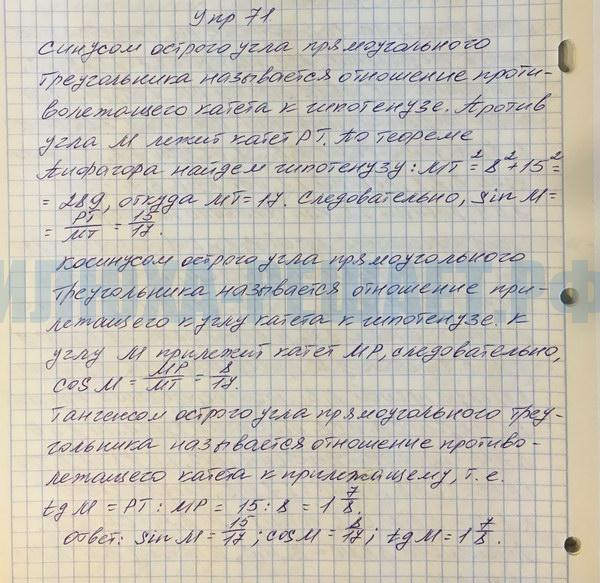 Упр 71
Синусом острого угла прямоугольного
треугольника называется отношение проти-
волежащего катета к гипотенузе. Против
угла M лежит катет PT. По теореме
Пифагора найдем гипотенузу: MT² = 8² + 15² =
= 289, откуда MT = 17. Следовательно, sin M =
= PT/MT = 15/17.
Косинусом острого угла прямоугольного
треугольника называется отношение при-
лежащего к углу катета к гипотенузе. К
углу M прилежит катет MP, следовательно,
cos M = MP/MT = 8/17.
Тангенсом острого угла прямоугольного треу-
гольника называется отношение противо-
лежащего катета к прилежащему, т.е.
tg M = PT : MP = 15 : 8 = 1 7/8.
Ответ: sin M = 15/17; cos M = 8/17; tg M = 1 7/8.